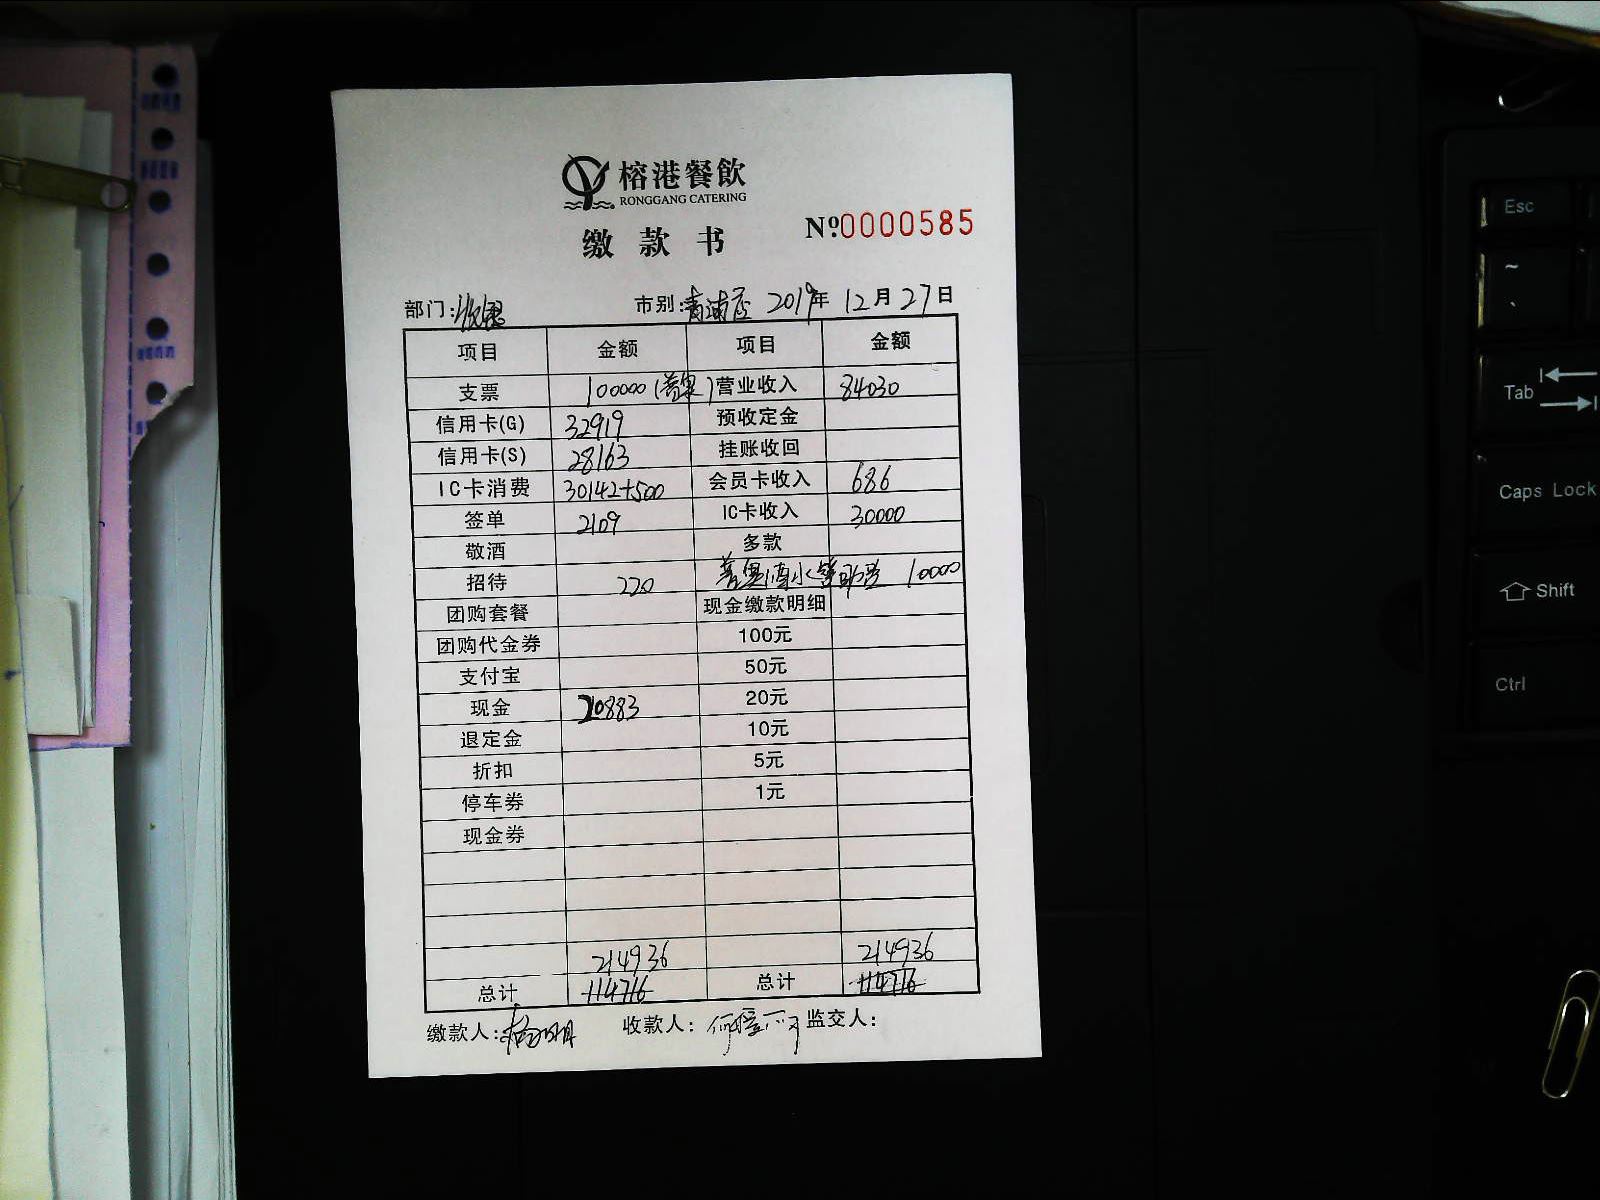 榕港餐飲
RONGGANG CATERING
缴款书
№0000585
部门:收银 市别:青浦店 2019年12月27日
项目 金额 项目 金额
支票 100000( ) 营业收入 84030
信用卡(G) 32919 预收定金
信用卡(S) 28163 挂账收回
IC卡消费 30142+500 会员卡收入 686
签单 2109 IC卡收入 30000
敬酒 多款
招待 220 酒水 10000
团购套餐 现金缴款明细
团购代金券 100元
支付宝 50元
现金 20883 20元
退定金 10元
折扣 5元
停车券 1元
现金券
214936 214936
总计 114716 总计 114716
缴款人: 收款人: 监交人:
Esc
~
`
Tab
Caps Lock
Shift
Ctrl